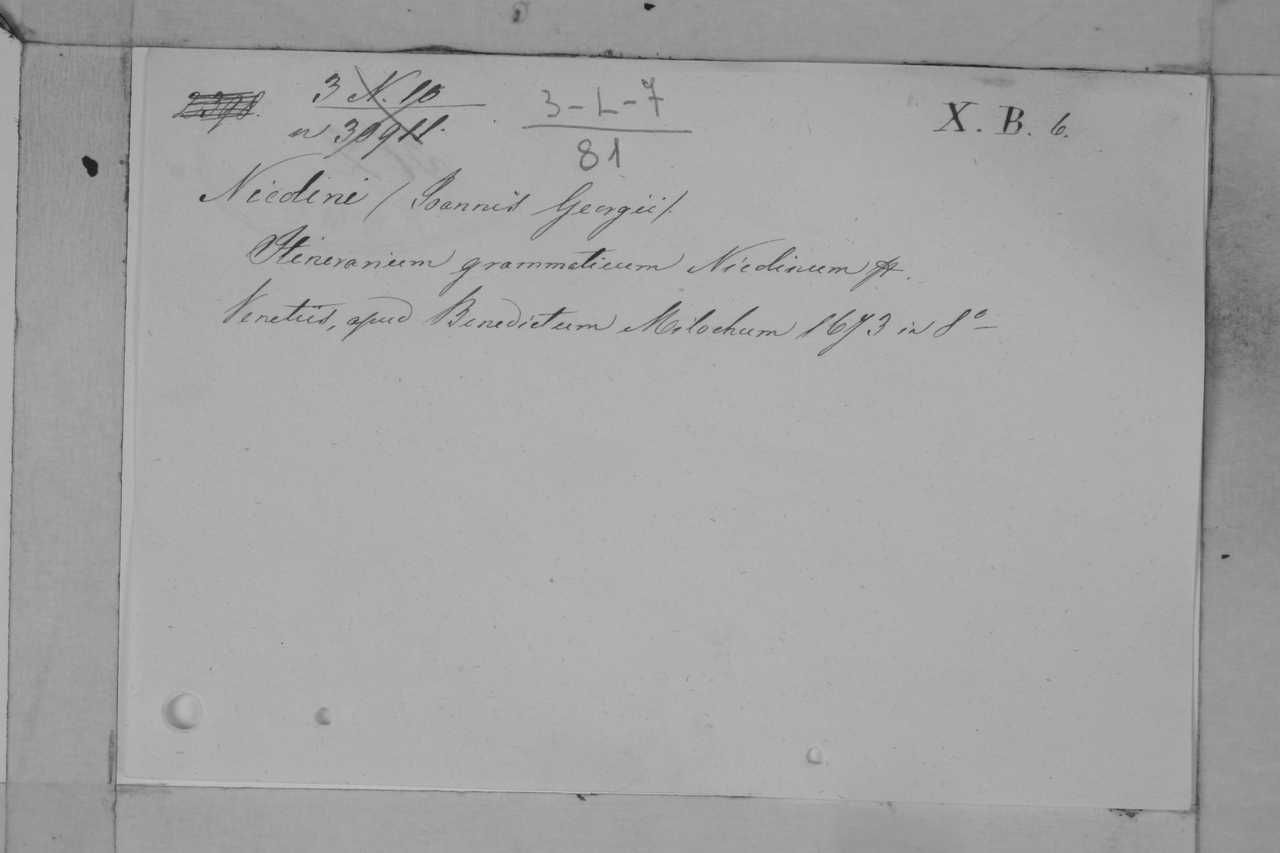 2398. 3 N. 10 3-L-7 X. B. 6.
n 30911. 81
Niedini / Joannis Georgii /.
Itinerarium grammaticum Niedinum &.
Venetiis, apud Benedictum Milochum 1673 in 8º